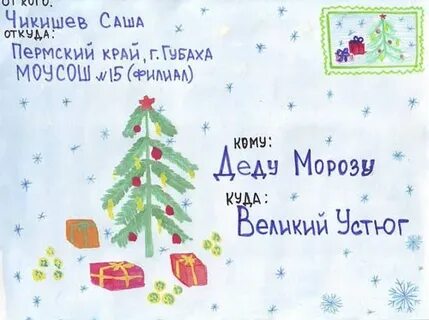 ОТ КОГО:
Чикишев Саша
ОТКУДА:
Пермский край, г. Губаха
МОУСОШ №15 (филиал)
КОМУ:
Деду Морозу
КУДА:
Великий Устюг